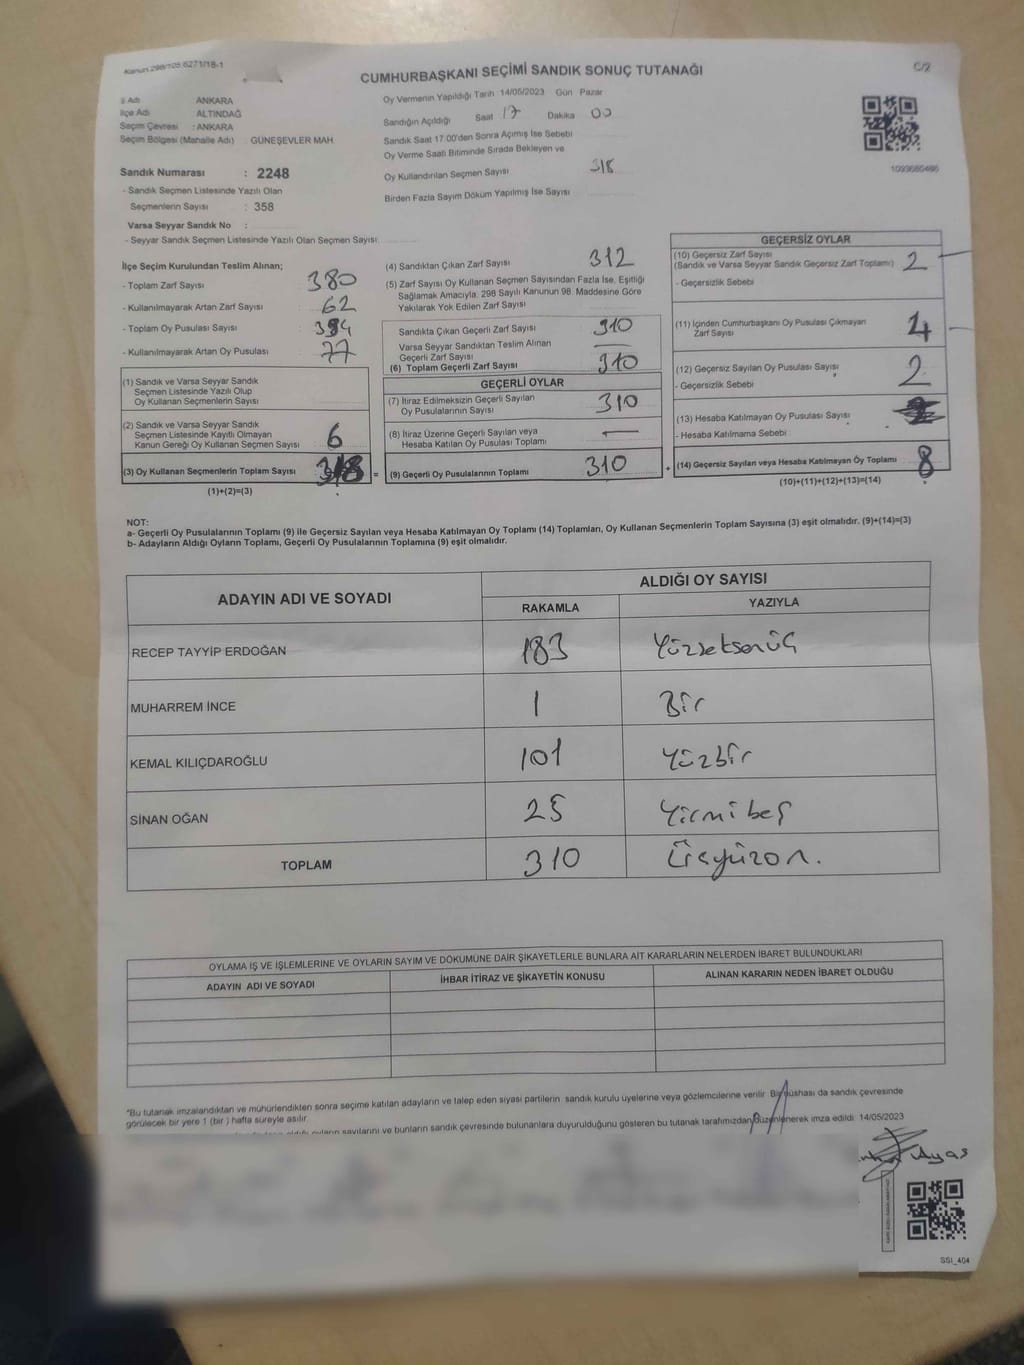 Kanun.298/105.6271/18-1
C/2
CUMHURBAŞKANI SEÇİMİ SANDIK SONUÇ TUTANAĞI
İl Adı ANKARA
İlçe Adı ALTINDAĞ
Seçim Çevresi : ANKARA
Seçim Bölgesi (Mahalle Adı) : GÜNEŞEVLER MAH
Sandık Numarası : 2248
- Sandık Seçmen Listesinde Yazılı Olan
Seçmenlerin Sayısı : 358
Varsa Seyyar Sandık No :
- Seyyar Sandık Seçmen Listesinde Yazılı Olan Seçmen Sayısı:
Oy Vermenin Yapıldığı Tarih 14/05/2023 Gün Pazar
Sandığın Açıldığı Saat 17 Dakika 00
Sandık Saat 17:00'den Sonra Açımış İse Sebebi
Oy Verme Saati Bitiminde Sırada Bekleyen ve
Oy Kullandırılan Seçmen Sayısı 318
Birden Fazla Sayım Döküm Yapılmış İse Sayısı
1093685486
İlçe Seçim Kurulundan Teslim Alınan;
- Toplam Zarf Sayısı : 380
- Kullanılmayarak Artan Zarf Sayısı : 62
- Toplam Oy Pusulası Sayısı : 394
- Kullanılmayarak Artan Oy Pusulası : 77
(1) Sandık ve Varsa Seyyar Sandık
Seçmen Listesinde Yazılı Olup
Oy Kullanan Seçmenlerin Sayısı
(2) Sandık ve Varsa Seyyar Sandık
Seçmen Listesinde Kayıtlı Olmayan
Kanun Gereği Oy Kullanan Seçmen Sayısı 6
(3) Oy Kullanan Seçmenlerin Toplam Sayısı 318 =
(1)+(2)=(3)
(4) Sandıktan Çıkan Zarf Sayısı 312
(5) Zarf Sayısı Oy Kullanan Seçmen Sayısından Fazla İse, Eşitliği
Sağlamak Amacıyla, 298 Sayılı Kanunun 98. Maddesine Göre
Yakılarak Yok Edilen Zarf Sayısı
Sandıkta Çıkan Geçerli Zarf Sayısı 310
Varsa Seyyar Sandıktan Teslim Alınan
Geçerli Zarf Sayısı —
(6) Toplam Geçerli Zarf Sayısı 310
GEÇERLİ OYLAR
(7) İtiraz Edilmeksizin Geçerli Sayılan
Oy Pusulalarının Sayısı 310
(8) İtiraz Üzerine Geçerli Sayılan veya
Hesaba Katılan Oy Pusulası Toplamı —
(9) Geçerli Oy Pusulalarının Toplamı 310 +
GEÇERSİZ OYLAR
(10) Geçersiz Zarf Sayısı
(Sandık ve Varsa Seyyar Sandık Geçersiz Zarf Toplamı) 2
- Geçersizlik Sebebi
(11) İçinden Cumhurbaşkanı Oy Pusulası Çıkmayan
Zarf Sayısı 4
(12) Geçersiz Sayılan Oy Pusulası Sayısı 2
- Geçersizlik Sebebi
(13) Hesaba Katılmayan Oy Pusulası Sayısı
- Hesaba Katılmama Sebebi
(14) Geçersiz Sayılan veya Hesaba Katılmayan Oy Toplamı 8
(10)+(11)+(12)+(13)=(14)
NOT:
a- Geçerli Oy Pusulalarının Toplamı (9) ile Geçersiz Sayılan veya Hesaba Katılmayan Oy Toplamı (14) Toplamları, Oy Kullanan Seçmenlerin Toplam Sayısına (3) eşit olmalıdır. (9)+(14)=(3)
b- Adayların Aldığı Oyların Toplamı, Geçerli Oy Pusulalarının Toplamına (9) eşit olmalıdır.
ADAYIN ADI VE SOYADI
ALDIĞI OY SAYISI
RAKAMLA YAZIYLA
RECEP TAYYİP ERDOĞAN 183 Yüzseksenüç
MUHARREM İNCE 1 Bir
KEMAL KILIÇDAROĞLU 101 Yüzbir
SİNAN OĞAN 25 Yirmibeş
TOPLAM 310 Üçyüzon.
OYLAMA İŞ VE İŞLEMLERİNE VE OYLARIN SAYIM VE DÖKÜMÜNE DAİR ŞİKAYETLERLE BUNLARA AİT KARARLARIN NELERDEN İBARET BULUNDUKLARI
ADAYIN ADI VE SOYADI İHBAR İTİRAZ VE ŞİKAYETİN KONUSU ALINAN KARARIN NEDEN İBARET OLDUĞU
*Bu tutanak imzalandıktan ve mühürlendikten sonra seçime katılan adayların ve talep eden siyasi partilerin sandık kurulu üyelerine veya gözlemcilerine verilir. Bir nüshası da sandık çevresinde
görülecek bir yere 1 (bir ) hafta süreyle asılır.
oyların sayılarını ve bunların sandık çevresinde bulunanlara duyurulduğunu gösteren bu tutanak tarafımızdan düzenlenerek imza edildi. 14/05/2023
Ayas
SSI_404